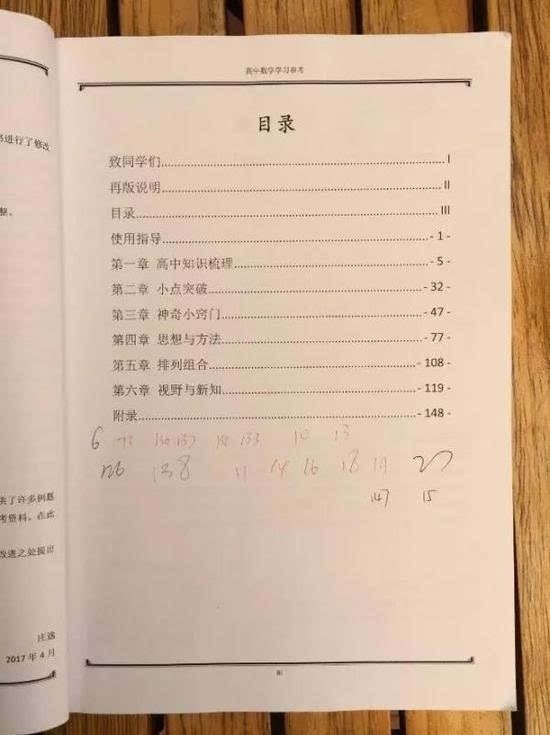 书进行了修改
整。
供了许多例题
考资料。在此
改进之处提出
庄逸
2017 年 4 月
高中数学学习参考
目录
致同学们............I
再版说明............II
目录............III
使用指导............- 1 -
第一章 高中知识梳理............- 5 -
第二章 小点突破............- 32 -
第三章 神奇小窍门............- 47 -
第四章 思想与方法............- 77 -
第五章 排列组合............- 108 -
第六章 视野与新知............- 119 -
附录............- 148 -
6 137 18 133 10 13
126 138 11 14 16 18 19
147 15
III